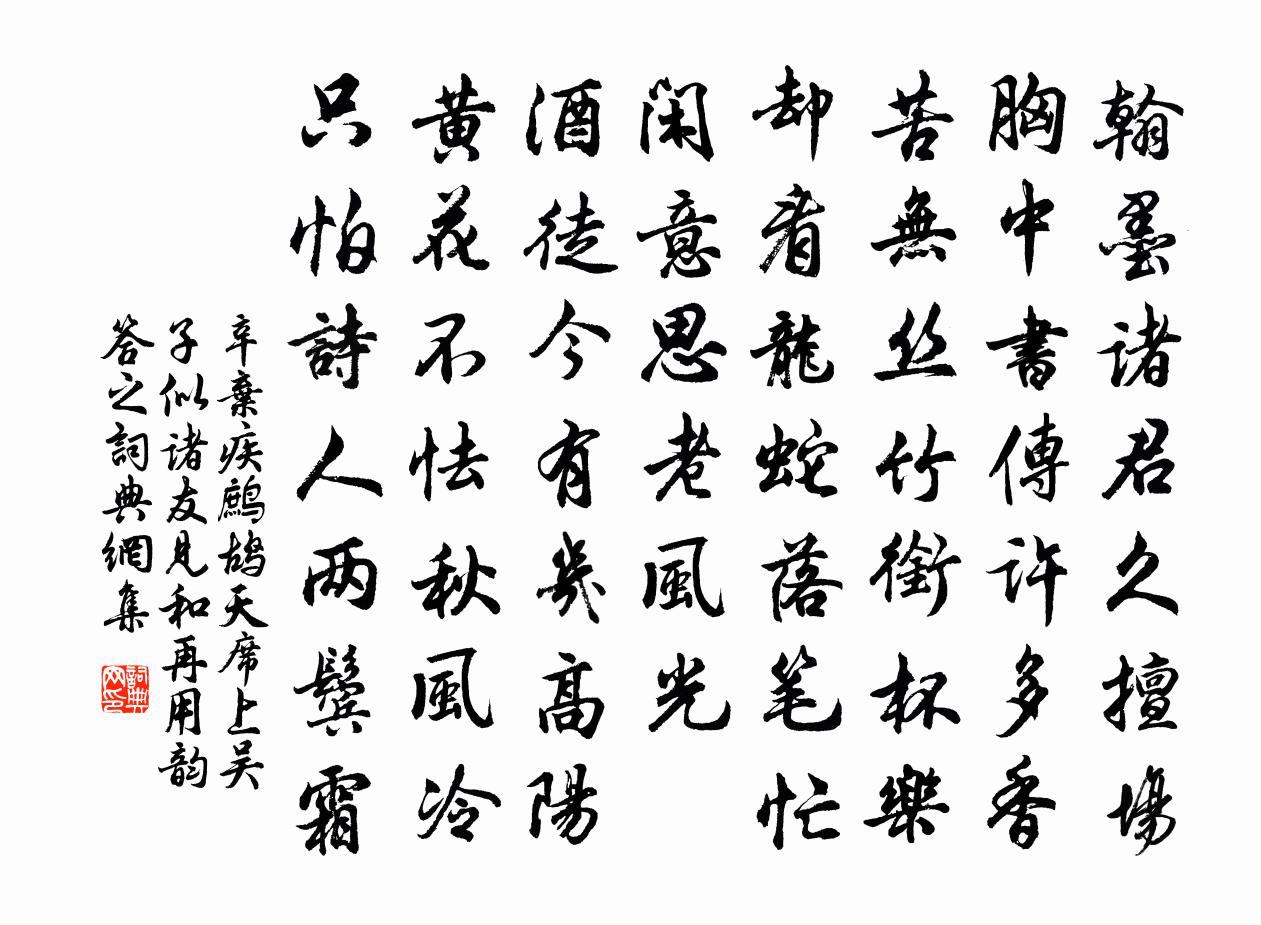 翰墨諸君久擅場
胸中書傳許多香
苦無丝竹銜杯樂
却看龍蛇落笔忙
閑意思老風光
酒徒今有幾高陽
黄花不怯秋風冷
只怕詩人两鬓霜
辛棄疾鷓鴣天席上吴
子似诸友見和再用韵
答之詞典網集
詞典网印